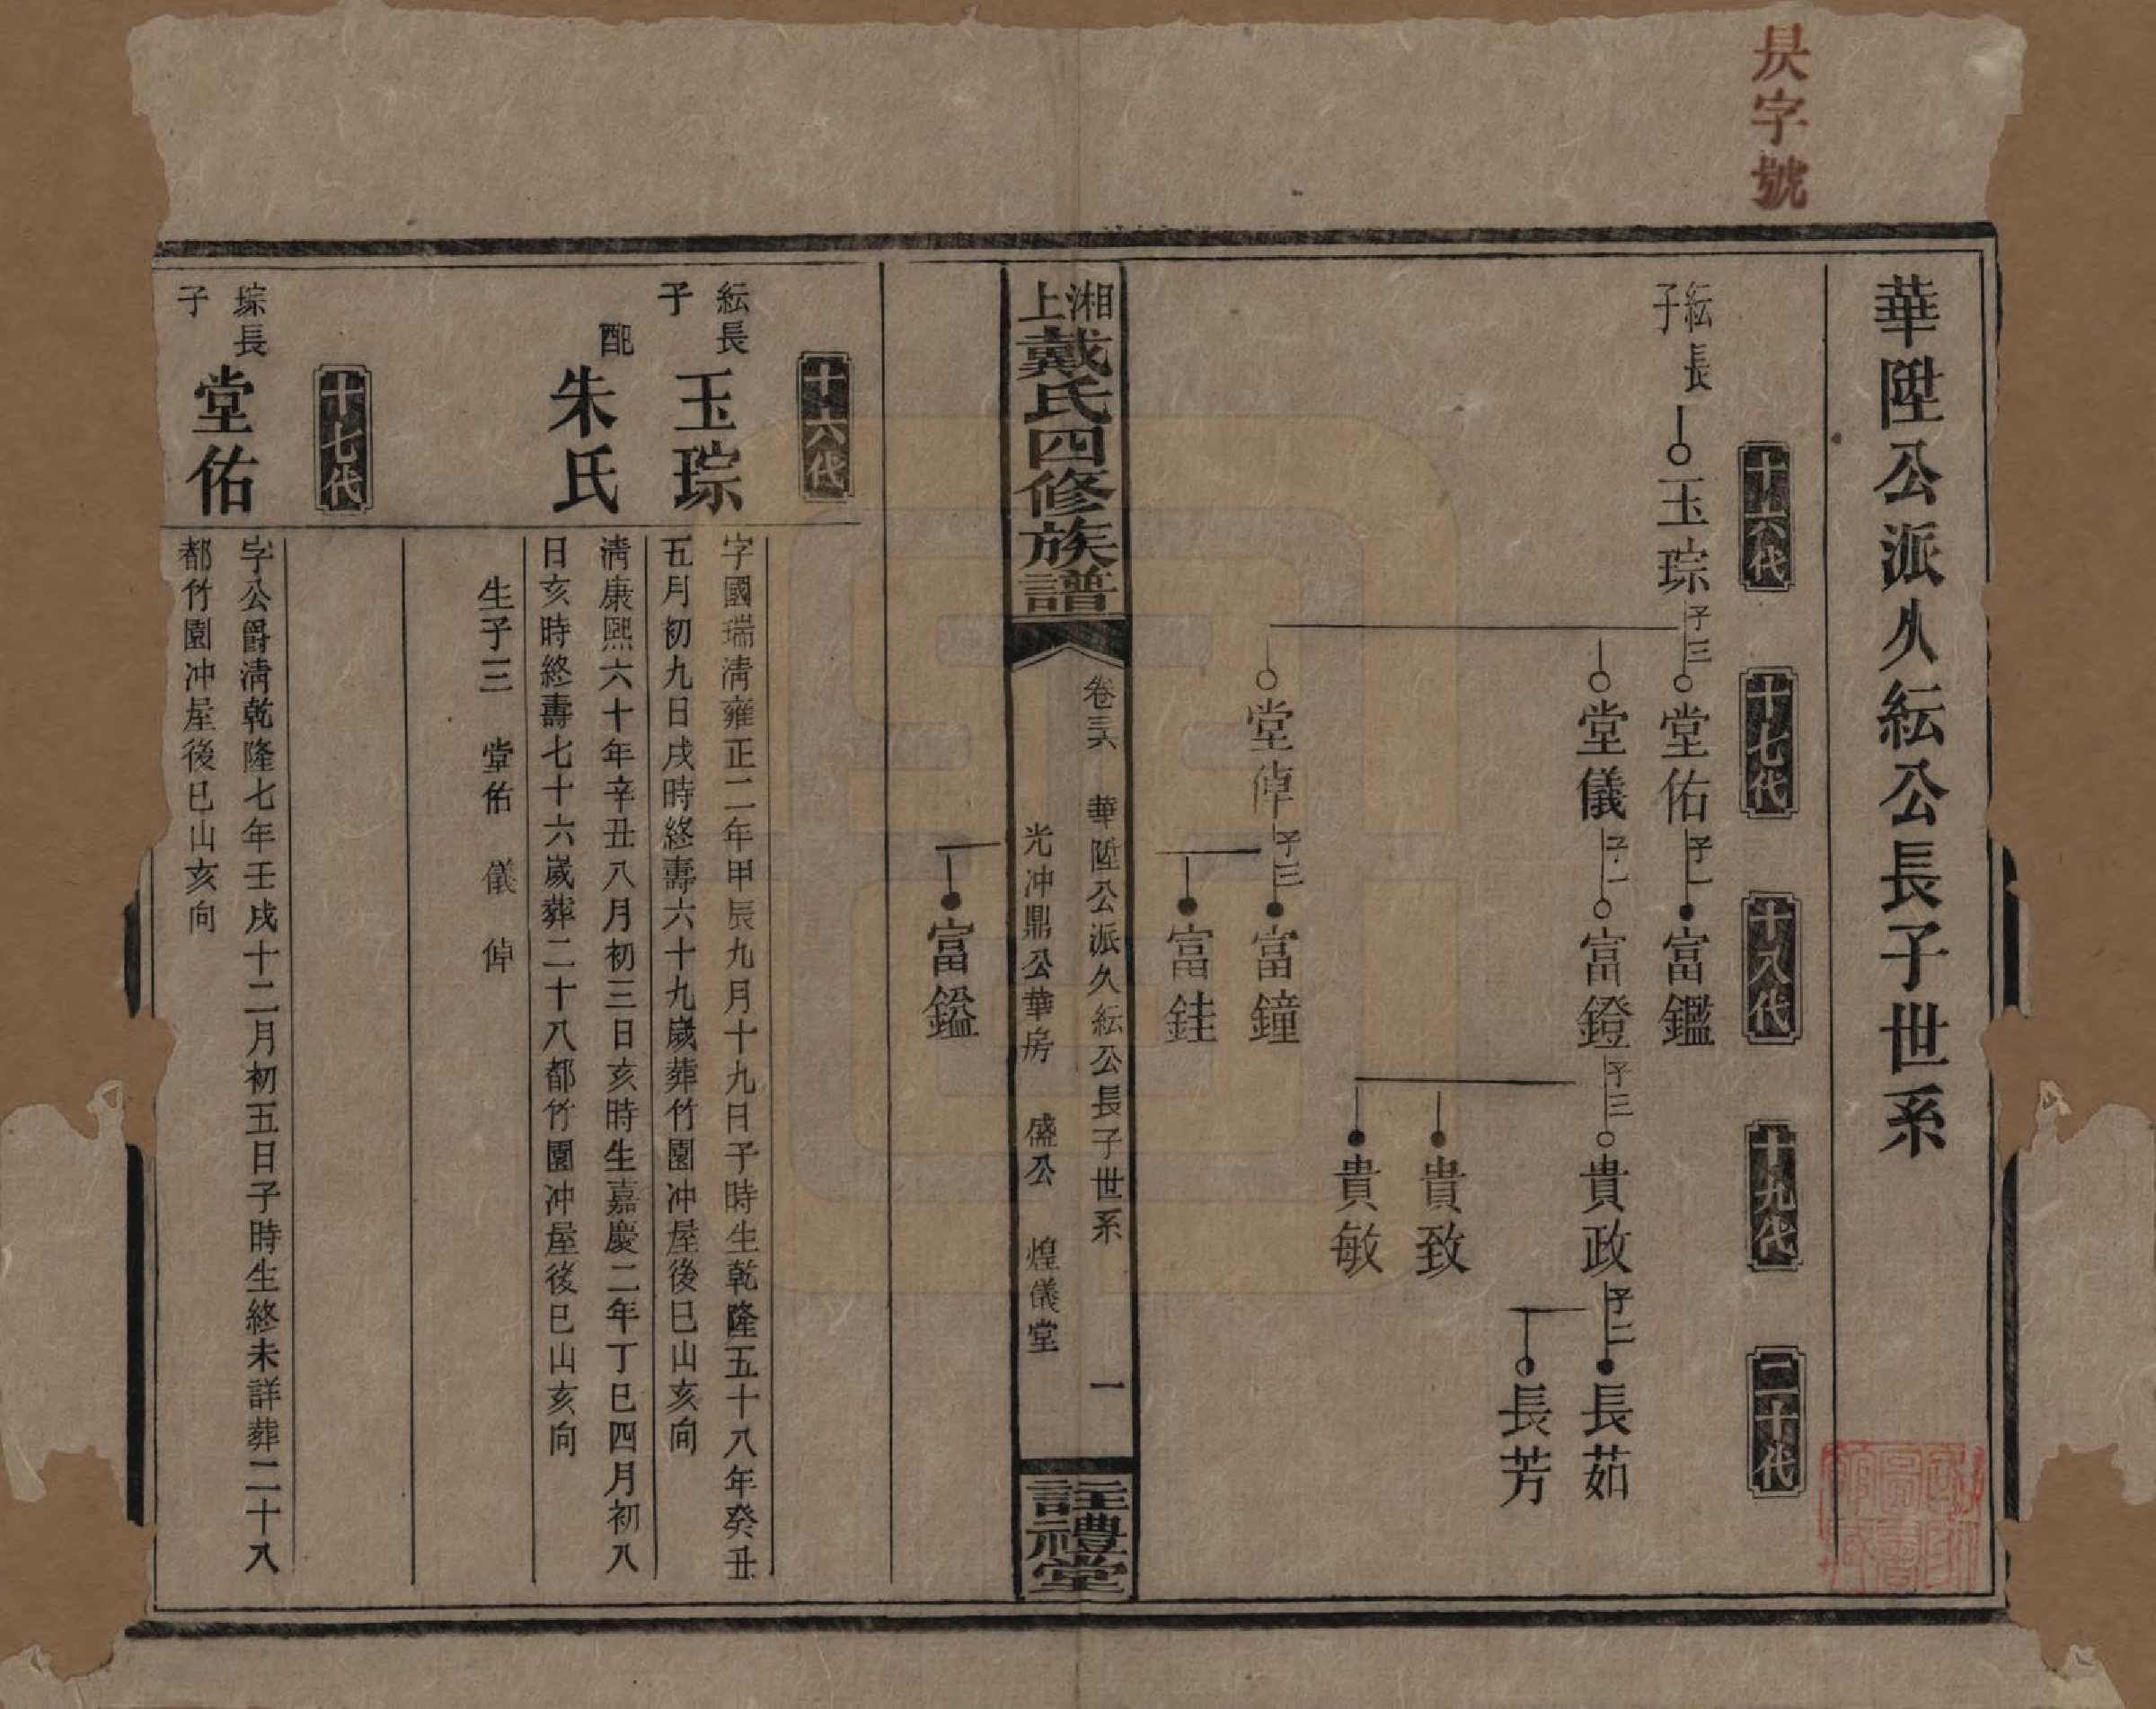 昃字號
華陞公派久紜公長子世系
十六代
十七代
十八代
十九代
二十代
紜長子
玉琮
子三
堂佑
子一
富鑑
堂儀
子一
富鐙
子三
貴政
子二
長茹
長芳
貴致
貴敏
堂倬
子三
富鐘
富銈
富鎰
湘上戴氏四修族譜
卷三六
華陞公派久紜公長子世系
一
光冲鼎公華房 盛公 煌儀堂
註禮堂
十六代
紜長子
玉琮
字國瑞清雍正二年甲辰九月十九日子時生乾隆五十八年癸丑
五月初九日戌時終壽六十九歲葬竹園冲屋後巳山亥向
配
朱氏
清康熙六十年辛丑八月初三日亥時生嘉慶二年丁巳四月初八
日亥時終壽七十六歲葬二十八都竹園冲屋後巳山亥向
生子三 堂佑 儀 倬
十七代
琮長子
堂佑
字公爵清乾隆七年壬戌十二月初五日子時生終未詳葬二十八
都竹園冲屋後巳山亥向